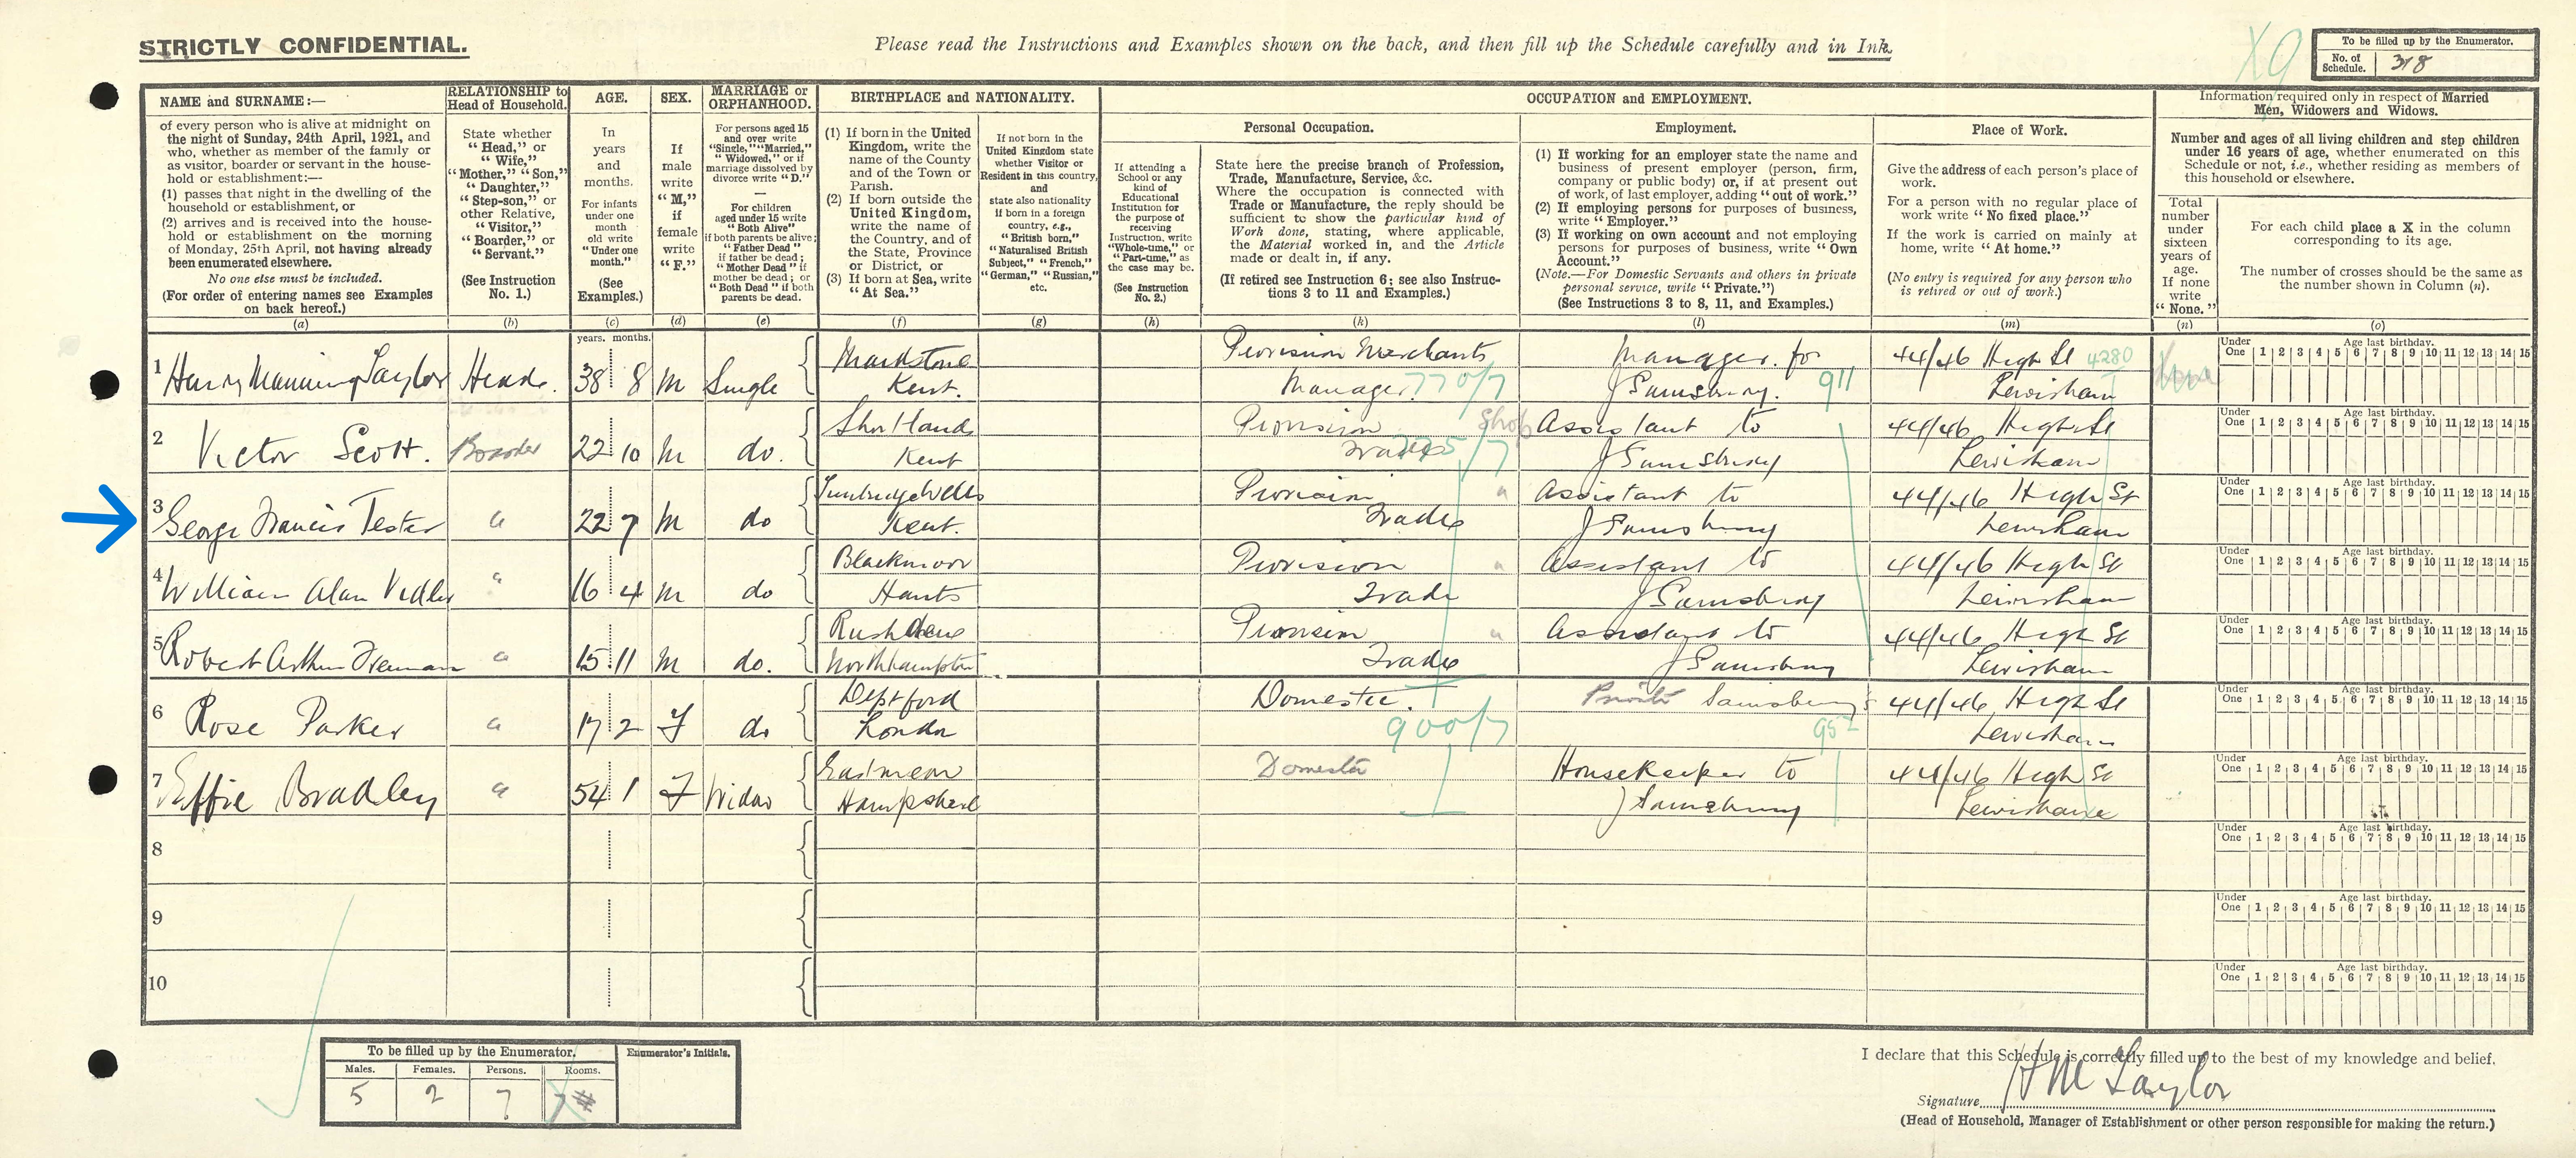 STRICTLY CONFIDENTIAL.
Please read the Instructions and Examples shown on the back, and then fill up the Schedule carefully and in Ink.
X9
To be filled up by the Enumerator.
No. of Schedule. 318
NAME and SURNAME:—
of every person who is alive at midnight on
the night of Sunday, 24th April, 1921, and
who, whether as member of the family or
as visitor, boarder or servant in the house-
hold or establishment:—
(1) passes that night in the dwelling of the
household or establishment, or
(2) arrives and is received into the house-
hold or establishment on the morning
of Monday, 25th April, not having already
been enumerated elsewhere.
No one else must be included.
(For order of entering names see Examples
on back hereof.)
(a)
RELATIONSHIP to
Head of Household.
State whether
"Head," or
"Wife,"
"Mother," "Son,"
"Daughter,"
"Step-son," or
other Relative,
"Visitor,"
"Boarder," or
"Servant."
(See Instruction
No. 1.)
(b)
AGE.
In
years
and
months.
For infants
under one
month
old write
"Under one
month."
(See
Examples.)
(c)
SEX.
If
male
write
"M,"
if
female
write
"F."
(d)
MARRIAGE or
ORPHANHOOD.
For persons aged 15
and over write
"Single," "Married,"
"Widowed," or if
marriage dissolved by
divorce write "D."
—
For children
aged under 15 write
"Both Alive"
if both parents be alive;
"Father Dead"
if father be dead;
"Mother Dead" if
mother be dead; or
"Both Dead" if both
parents be dead.
(e)
BIRTHPLACE and NATIONALITY.
(1) If born in the United
Kingdom, write the
name of the County
and of the Town or
Parish.
(2) If born outside the
United Kingdom,
write the name of
the Country, and of
the State, Province
or District, or
(3) If born at Sea, write
"At Sea."
(f)
If not born in the
United Kingdom state
whether Visitor or
Resident in this country,
and
state also nationality
if born in a foreign
country, e.g.,
"British born,"
"Naturalised British
Subject," "French,"
"German," "Russian,"
etc.
(g)
OCCUPATION and EMPLOYMENT.
If attending a
School or any
kind of
Educational
Institution for
the purpose of
receiving
Instruction, write
"Whole-time," or
"Part-time," as
the case may be.
(See Instruction
No. 2.)
(h)
Personal Occupation.
State here the precise branch of Profession,
Trade, Manufacture, Service, &c.
Where the occupation is connected with
Trade or Manufacture, the reply should be
sufficient to show the particular kind of
Work done, stating, where applicable,
the Material worked in, and the Article
made or dealt in, if any.
(If retired see Instruction 6; see also Instruc-
tions 3 to 11 and Examples.)
(k)
Employment.
(1) If working for an employer state the name and
business of present employer (person, firm,
company or public body) or, if at present out
of work, of last employer, adding "out of work."
(2) If employing persons for purposes of business,
write "Employer."
(3) If working on own account and not employing
persons for purposes of business, write "Own
Account."
(Note.—For Domestic Servants and others in private
personal service, write "Private.")
(See Instructions 3 to 8, 11, and Examples.)
(l)
Place of Work.
Give the address of each person's place of
work.
For a person with no regular place of
work write "No fixed place."
If the work is carried on mainly at
home, write "At home."
(No entry is required for any person who
is retired or out of work.)
(m)
Information required only in respect of Married
Men, Widowers and Widows.
Number and ages of all living children and step children
under 16 years of age, whether enumerated on this
Schedule or not, i.e., whether residing as members of
this household or elsewhere.
Total
number
under
sixteen
years of
age.
If none
write
"None."
(n)
For each child place a X in the column
corresponding to its age.
The number of crosses should be the same as
the number shown in Column (n).
(o)
years. months.
1 Harry Manning Taylor Head. 38 8 M Single Maidstone Kent. Provision Merchants Manager. 770/7 Manager. for J Sainsbury. 911 44/46 High St Lewisham 4280
Under One Age last birthday. 1 2 3 4 5 6 7 8 9 10 11 12 13 14 15
2 Victor Scott. Boarder 22 10 M do. Shortlands Kent Provision Shop Trade 775/7 Assistant to J Sainsbury 44/46 High St Lewisham
Under One Age last birthday. 1 2 3 4 5 6 7 8 9 10 11 12 13 14 15
3 George Francis Tester " 22 7 M do Tunbridge Wells Kent. Provision " Trade Assistant to J Sainsbury 44/46 High St Lewisham
Under One Age last birthday. 1 2 3 4 5 6 7 8 9 10 11 12 13 14 15
4 William Alan Vidler " 16 4 M do Blackmoor Hants Provision " Trade Assistant to J Sainsbury 44/46 High St Lewisham
Under One Age last birthday. 1 2 3 4 5 6 7 8 9 10 11 12 13 14 15
5 Robert Arthur Freeman " 15 11 M do. Rushdene Northhampton Provision " Trade Assistant to J Sainsbury 44/46 High St Lewisham
Under One Age last birthday. 1 2 3 4 5 6 7 8 9 10 11 12 13 14 15
6 Rose Parker " 17 2 F do Deptford London Domestic. 900/7 Private Sainsbury's 952 44/46 High St Lewisham
Under One Age last birthday. 1 2 3 4 5 6 7 8 9 10 11 12 13 14 15
7 Effie Bradley " 54 1 F Widow Eastmeon Hampshire Domestic Housekeeper to J Sainsbury 44/46 High St Lewisham
Under One Age last birthday. 1 2 3 4 5 6 7 8 9 10 11 12 13 14 15
8
Under One Age last birthday. 1 2 3 4 5 6 7 8 9 10 11 12 13 14 15
9
Under One Age last birthday. 1 2 3 4 5 6 7 8 9 10 11 12 13 14 15
10
Under One Age last birthday. 1 2 3 4 5 6 7 8 9 10 11 12 13 14 15
To be filled up by the Enumerator.
Enumerator's Initials.
Males. Females. Persons. Rooms.
5 2 7 7
I declare that this Schedule is correctly filled up to the best of my knowledge and belief.
Signature H M Taylor
(Head of Household, Manager of Establishment or other person responsible for making the return.)